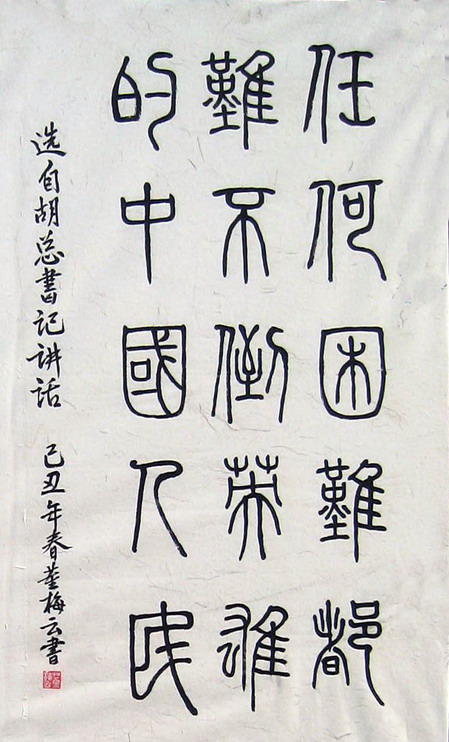 任何困難都
難不倒英雄
的中國人民
选自胡总書记讲话 己丑年春董梅云書